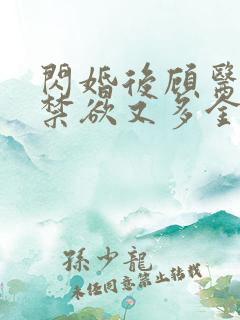 閃婚後顾醫
禁欲又多金
孫少龍
未任同意禁止转载